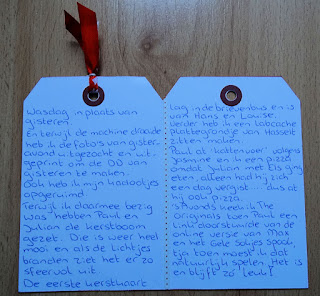 Wasdag in plaats van
gisteren.
En terwijl de machine draaide
heb ik de foto's van gister.
avond uitgezocht en uit.
geprint om de DD van
gisteren te maken.
Ook heb ik mijn kadootjes
opgeruimd
Terwijl ik daarmee bezig
was hebben Paul en
Julian de kerstboom
gezet. Die is weer heel
mooi en als de lichtjes
branden ziet het er zo
sfeervol uit.
De eerste kerstkaart
lag in de brievenbus en is
van Hans en Louise.
Verder heb ik een
plattegrondje van Hasselt
zitten maken.
Paul at volgens
Jasmine en ik een pizza
omdat Julian met Els ging
eten, alleen had hij zich
een dag vergist... dus at
hij ook pizza.
's Avonds keek ik The
Originals toen Paul een
link doorstuurde van de
online versie van Max
en het Gele Sofies spook,
tja toen moest ik dat
natuurlijk spelen. Het is
en blijft zo leuk!